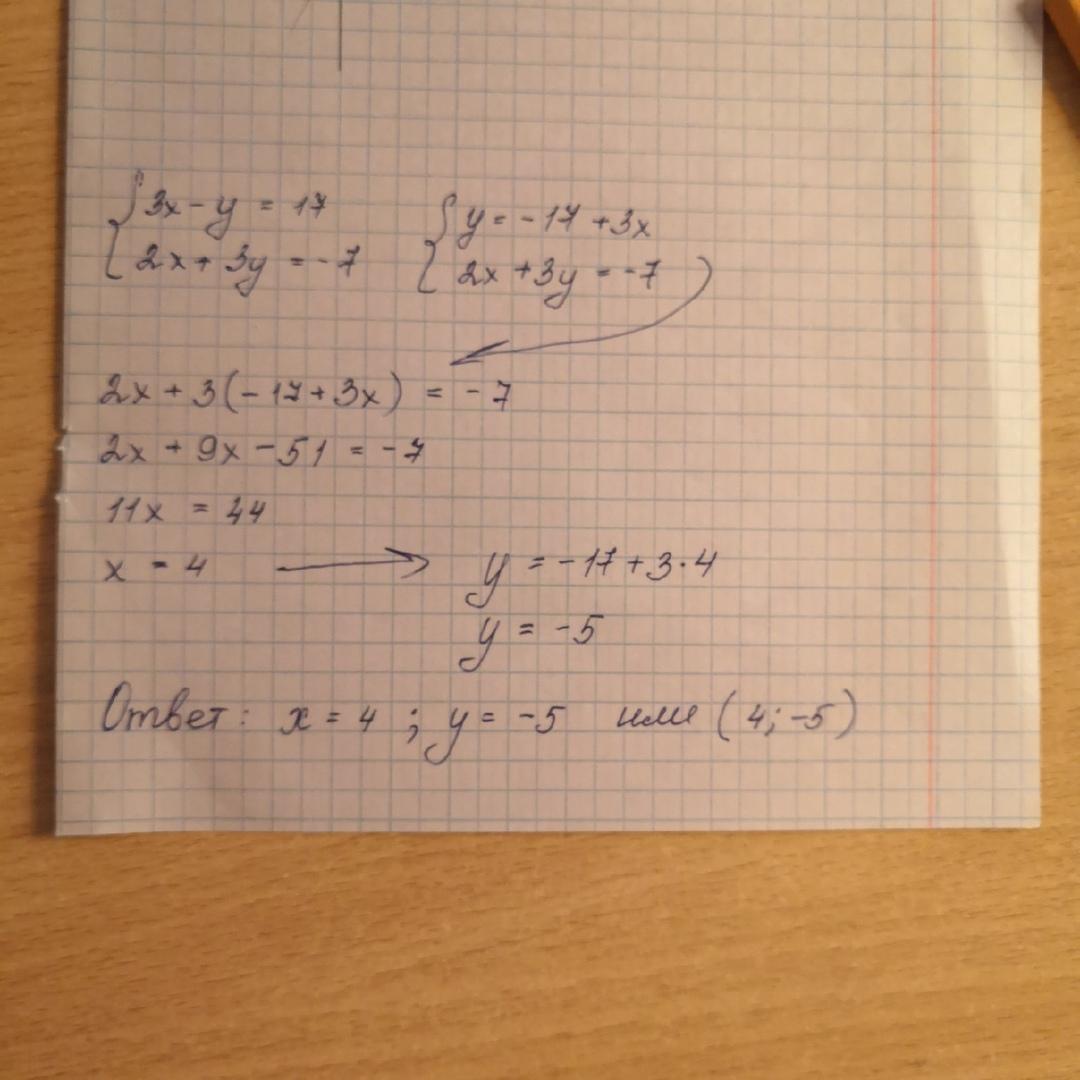 {3x - y = 17
{2x + 3y = -7
{y = -17 + 3x
{2x + 3y = -7
2x + 3(-17 + 3x) = -7
2x + 9x - 51 = -7
11x = 44
x = 4 → y = -17 + 3·4
y = -5
Ответ: x = 4 ; y = -5 или (4; -5)